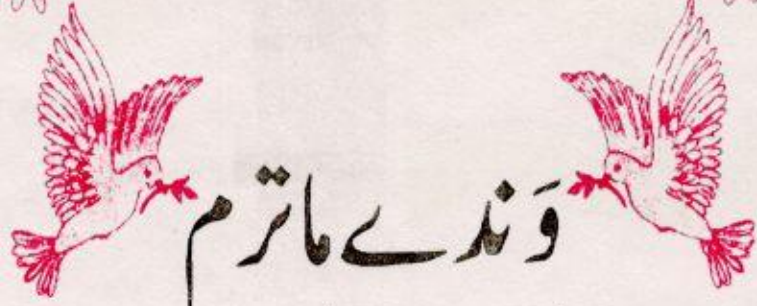 وَندے ماترم